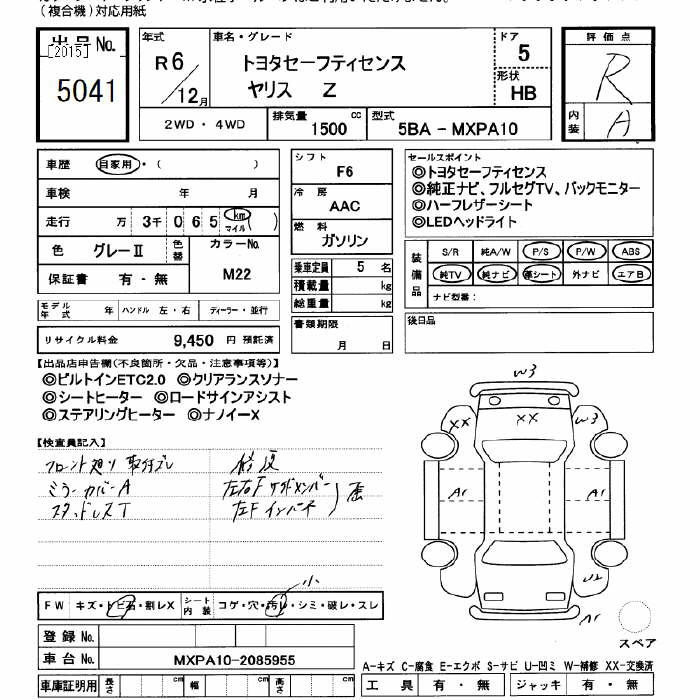 (複合機)対応用紙
出品No.
[2015]
5041
年式
R6
12月
車名・グレード
トヨタセーフティセンス
ヤリス Z
ドア
5
形状
HB
評価点
R
内装
A
2WD・4WD
排気量
1500
cc
型式
5BA - MXPA10
車歴
自家用・( )
車検 年 月
走行 万 3千065 km マイル ( )
色
グレーⅡ
色替
カラーNo.
M22
保証書 有・無
モデル年式 年 ハンドル 左・右 ディーラー・並行
リサイクル料金 9,450 円 預託済
シフト
F6
冷房
AAC
燃料
ガソリン
乗車定員 5 名
積載量 kg
総重量 kg
書類期限
月 日
セールスポイント
◎トヨタセーフティセンス
◎純正ナビ、フルセグTV、バックモニター
◎ハーフレザーシート
◎LEDヘッドライト
装備品
S/R 純A/W P/S P/W ABS
純TV 純ナビ 革シート 外ナビ エアB
ナビ型番:
後日品
【出品店申告欄(不良箇所・欠品・注意事項等)】
◎ビルトインETC2.0 ◎クリアランスソナー
◎シートヒーター ◎ロードサインアシスト
◎ステアリングヒーター ◎ナノイーX
【検査員記入】
フロント廻り 取付ズレ
ミラーカバーA
スタッドレスT
修復
左右Fサイドメンバー
左Fインパネ
歪
FW キズ・トビ石・割レX
シート内装 コゲ・穴・汚レ・シミ・破レ・スレ
小
登録No.
車台No. MXPA10-2085955
車庫証明用 長さ cm 幅 cm 高さ cm
W3
XX
XX
W3
A1
A1
U2
A1
スペア
A-キズ C-腐食 E-エクボ S-サビ U-凹ミ W-補修 XX-交換済
工具 有・無 ジャッキ 有・無